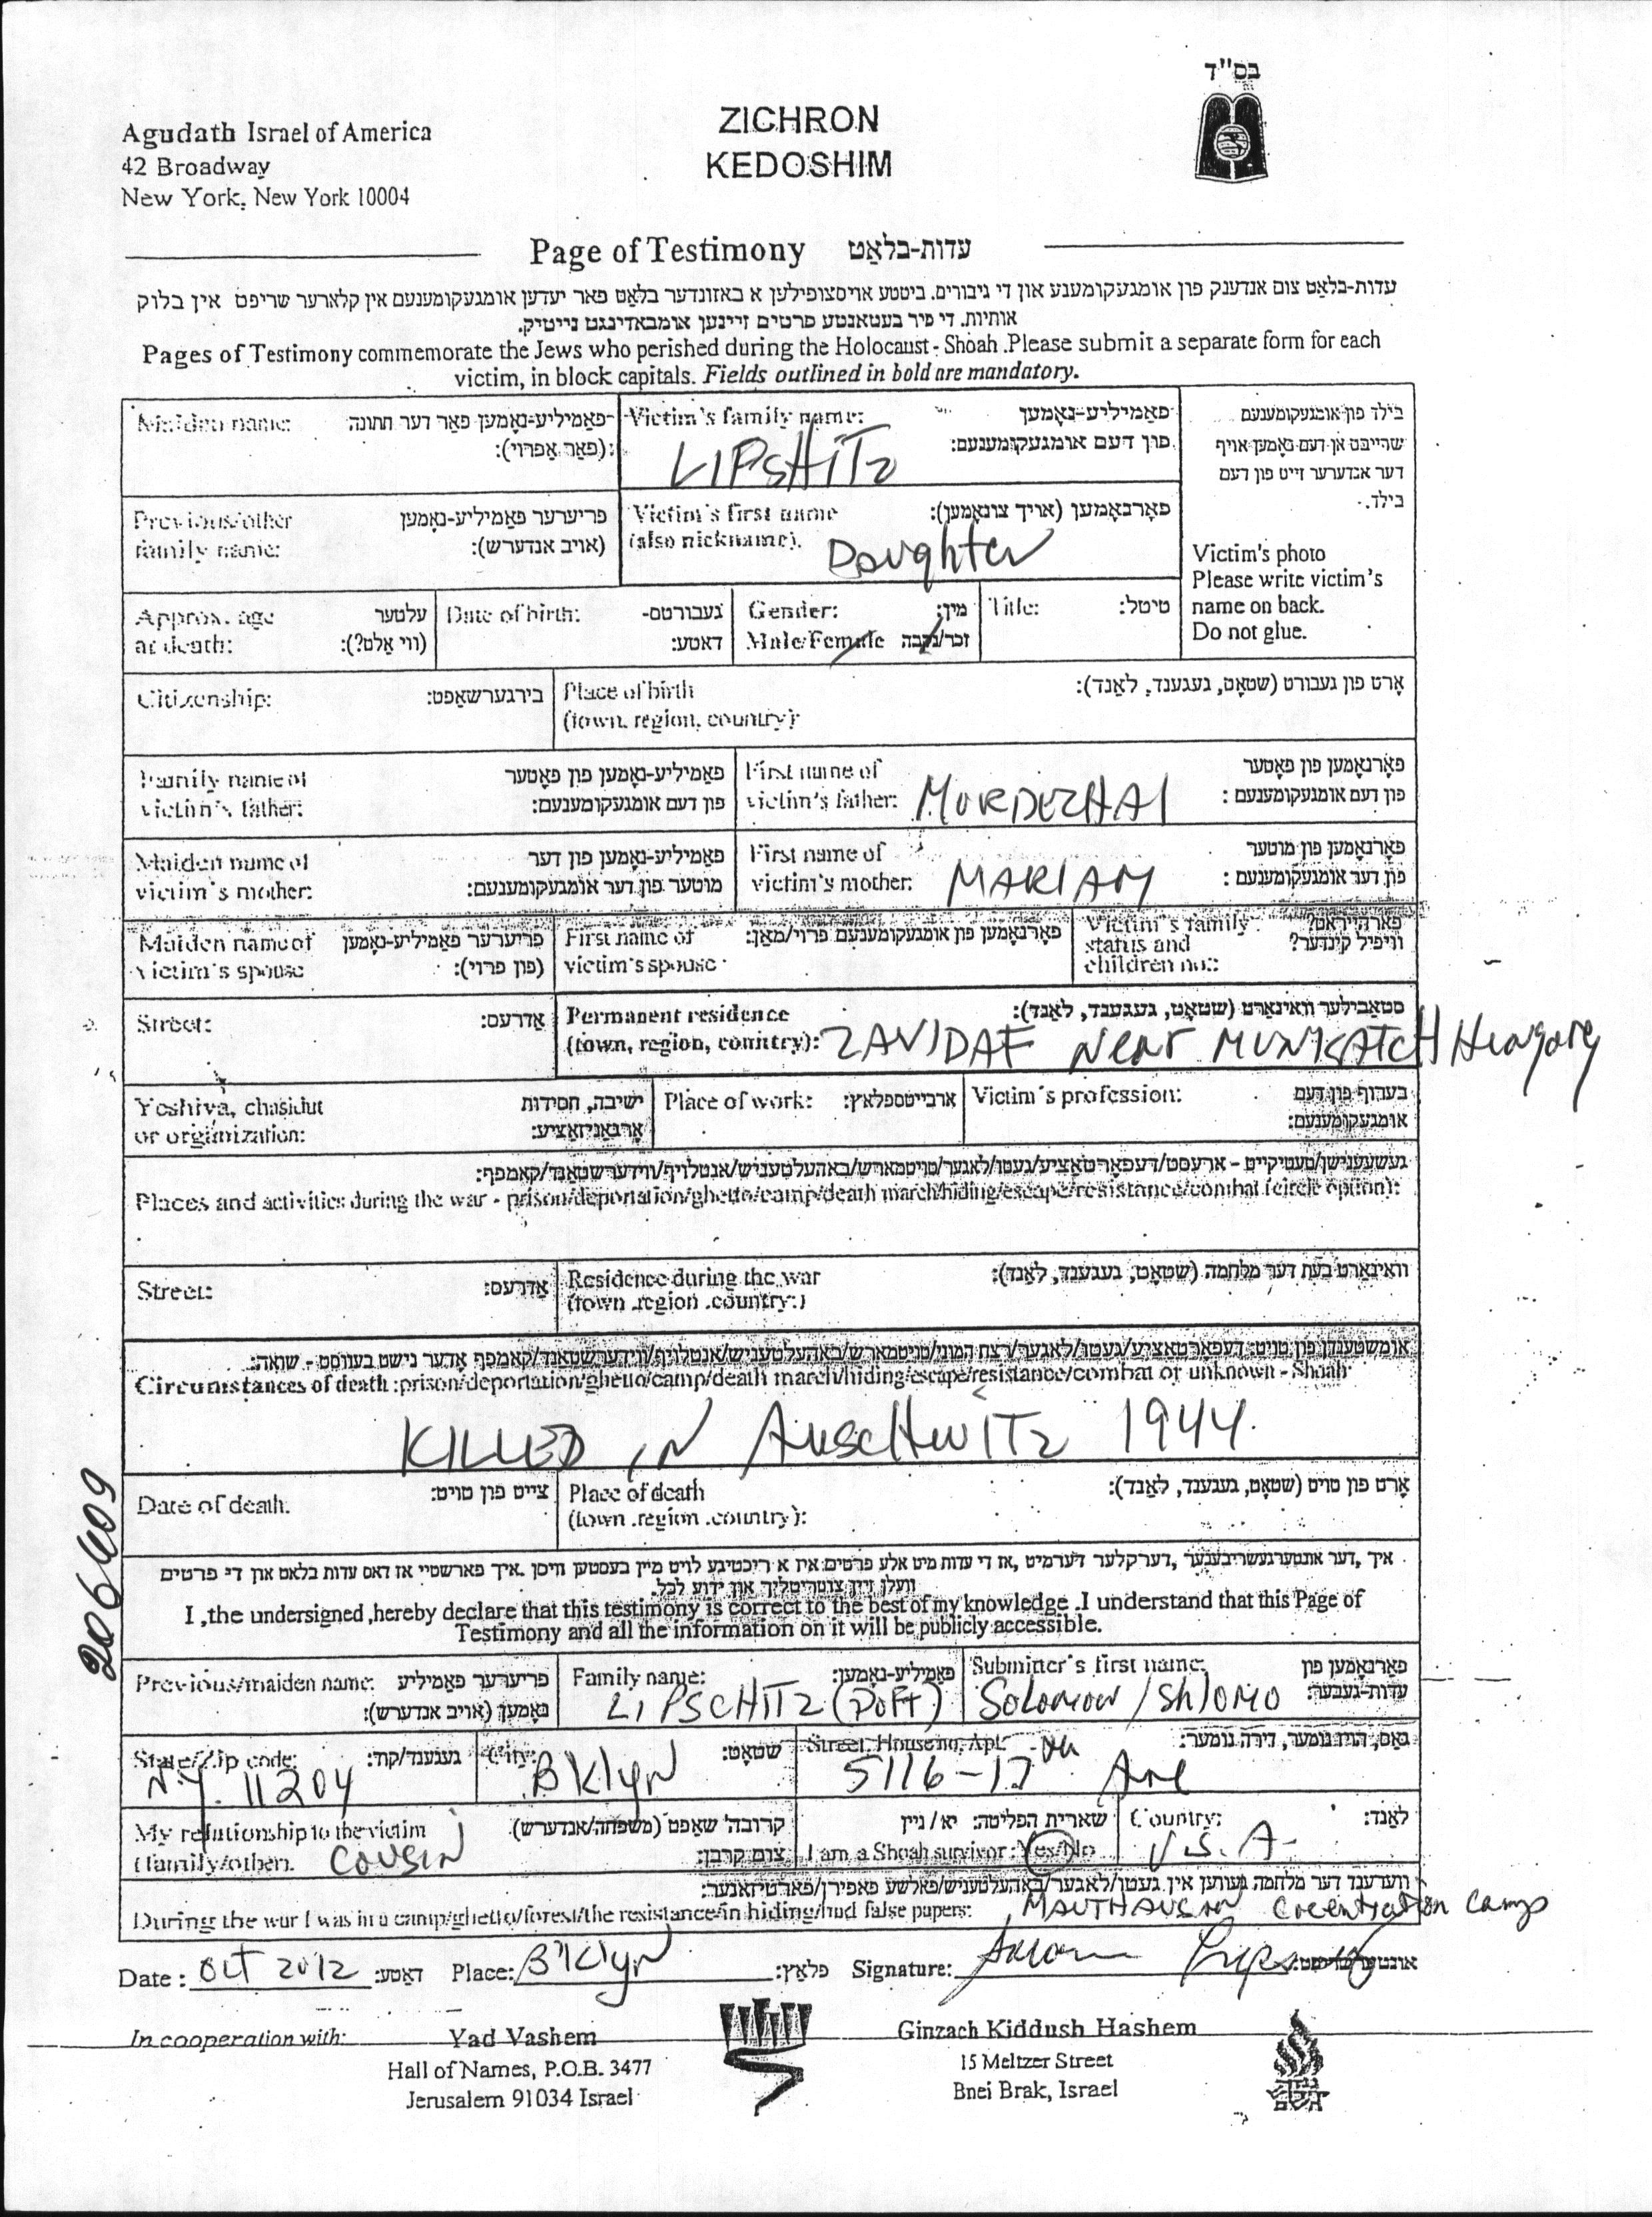 בס"ד
Agudath Israel of America
42 Broadway
New York, New York 10004
ZICHRON
KEDOSHIM
Page of Testimony עדות-בלאַט
עדות-בלאַט צום אנדענק פון אומגעקומענע און די גיבורים. ביטטע אויסצופילען א באזונדער בלאַט פאר יעדען אומגעקומענעם אין קלארער שריפט אין בלוק
אותיות. די פיר בעטאנטע פרטים זיינען אומבאדינגט נייטיק.
Pages of Testimony commemorate the Jews who perished during the Holocaust - Shoah .Please submit a separate form for each
victim, in block capitals. Fields outlined in bold are mandatory.
Maiden name: פאַמיליע-נאָמען פאַר דער חתונה
(פאַר אַפרוי):
Victim's family name: פאַמיליע-נאָמען
פון דעם אומגעקומענעם:
LIPSHITZ
בילד פון אומגעקומענעם
שרייבט אן דעם נאָמען אויף
דער אנדערער זייט פון דעם
בילד.
Previous/other פריערער פאַמיליע-נאָמען
family name: (אויב אנדערש):
Victim's first name פאָרנאָמען (אויך צונאָמען):
(also nickname).
Daughter
Victim's photo
Please write victim's
name on back.
Do not glue.
Approx. age עלטער
at death: (ווי אַלט?):
Date of birth: געבורטס-
דאטע:
Gender: מין:
Male/Female זכר/נקבה
Title: טיטל:
Citizenship: בירגערשאַפט:
Place of birth אָרט פון געבורט (שטאָט, געגענד, לאַנד):
(town, region, country):
Family name of פאַמיליע-נאָמען פון פאָטער
victim's father: פון דעם אומגעקומענעם:
First name of פאָרנאָמען פון פאָטער
victim's father: MORDECHAI פון דעם אומגעקומענעם :
Maiden name of פאַמיליע-נאָמען פון דער
victim's mother: מוטער פון דער אומגעקומענעם:
First name of פאָרנאָמען פון מוטער
victim's mother: MARIAM פון דער אומגעקומענעם :
Maiden name of פריערער פאַמיליע-נאָמען
victim's spouse (פון פרוי):
First name of פאָרנאָמען פון אומגעקומענעם פרוי/מאַן:
victim's spouse
Victim's family פארהייראט?
status and וויפיל קינדער?
children no.:
Street: אַדרעס:
Permanent residence סטאַבילער וואוינאָרט (שטאָט, געגענד, לאַנד):
(town, region, country): ZAVIDAF Near MUNKATCH Hungary
Yeshiva, chasidut ישיבה, חסידות
or organization: אָרגאַניזאַציע:
Place of work: ארבייטספלאץ:
Victim's profession: בערוף פון דעם
אומגעקומענעם:
געשעענישן/טעטיקייט - ארעסט/דעפאָרטאַציע/געטו/לאגער/טויטמארש/באהעלטעניש/אנטלויף/ווידערשטאַנד/קאמפף:
Places and activities during the war - prison/deportation/ghetto/camp/death march/hiding/escape/resistance/combat (circle option):
Street: אַדרעס:
Residence during the war וואוינאָרט בעת דער מלחמה (שטאָט, געגענד, לאַנד):
(town .region .country:)
אומשטענדן פון טויט: דעפארטאציע/געטו/לאגער/רצח המוני/טויטמארש/באהעלטעניש/אנטלויף/ווידערשטאנד/קאמפף אָדער נישט בעוואוסט - שואה:
Circumstances of death :prison/deportation/ghetto/camp/death march/hiding/escape/resistance/combat or unknown - Shoah
KILLED IN AuscHWITz 1944.
Date of death: צייט פון טויט:
Place of death אָרט פון טויט (שטאָט, געגענד, לאַנד):
(town .region .country):
206409
איך ,דער אונטערגעשריבענער ,דערקלער דערמיט ,אז די עדות מיט אלע פרטים אין א ריכטיגע לויט מיין בעסטען וויסן .איך פארשטיי אז דאס עדות בלאט און די פרטים
וועלן זיין צוטריטליך און ידוע לכל.
I ,the undersigned ,hereby declare that this testimony is correct to the best of my knowledge .I understand that this Page of
Testimony and all the information on it will be publicly accessible.
Previous/maiden name: פריערער פאַמיליע
נאָמען (אויב אנדערש):
Family name: פאַמיליע-נאָמען:
LIPSCHITZ (Doft)
Submitter's first name: פאָרנאָמען פון
Solomon / Shlomo עדות-געבער:
State/Zip code: געגענד/קוד:
N.Y. 11204
City: שטאָט:
BKlyn
Street, House no, Apt. גאַס, הויז נומער, דירה נומער:
5116-17th Ave
My relationship to the victim קרובה'שאַפט (משפחה/אנדערש)
(family/other). COUSIN צום קרבן:
שארית הפליטה: יא / ניין
I am a Shoah survivor: Yes/No
Country: לאַנד:
U.S.A.
ווערענד דער מלחמה געווען אין געטו/לאגער/באהעלטעניש/פאלשע פאפירן/פארטיזאנער:
During the war I was in a camp/ghetto/forest/the resistance/in hiding/had false papers: MAUTHAUSEN Cocentration camp
Date : Oct 2012 דאַטע: Place: B'Klyn פלאַץ: Signature:
In cooperation with:
Yad Vashem
Hall of Names, P.O.B. 3477
Jerusalem 91034 Israel
Ginzach Kiddush Hashem
15 Meltzer Street
Bnei Brak, Israel